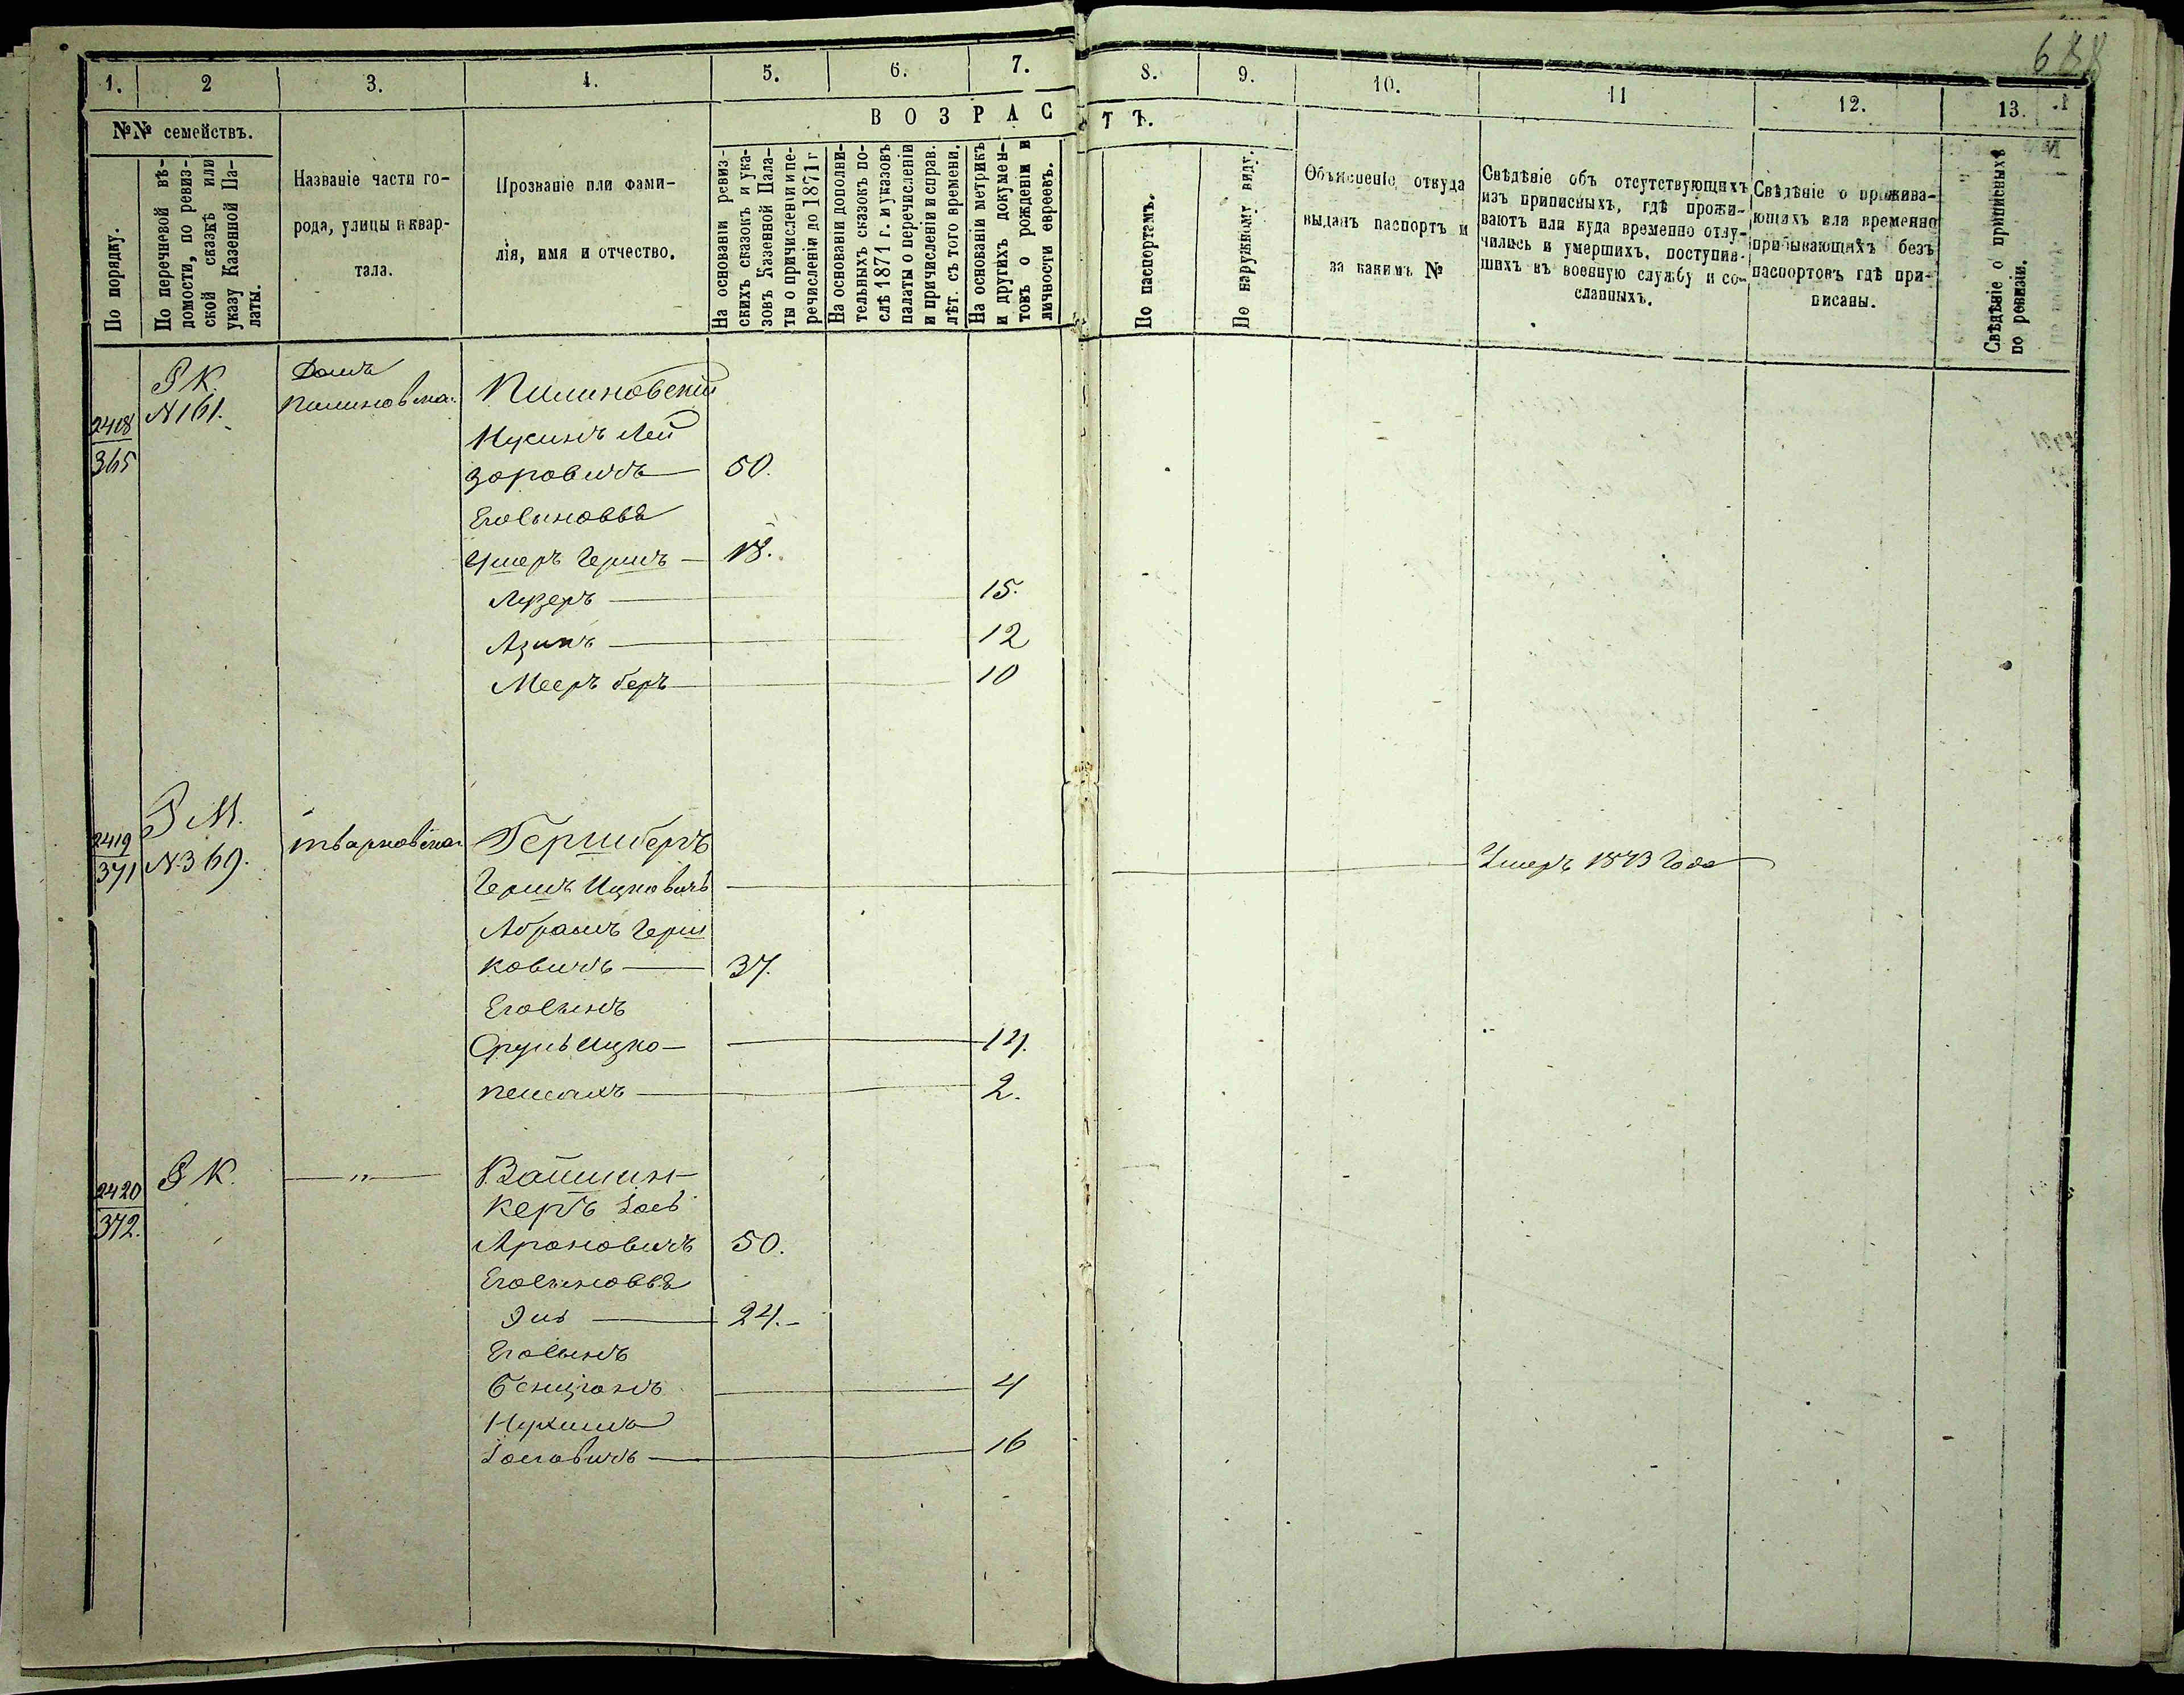 688
1. 2 3. 4. 5. 6. 7. 8. 9. 10. 11 12. 13.
№№ семействъ.
В О З Р А С Т Ъ.
По порядку.
По перечневой вѣ-
домости, по ревиз-
ской сказкѣ или
указу Казенной Па-
латы.
Названіе части го-
рода, улицы и квар-
тала.
Прозваніе или фами-
лія, имя и отчество.
На основаніи ревиз-
скихъ сказокъ и ука-
зовъ Казенной Пала-
ты о причисленіи и пе-
речисленіи до 1871 г
На основаніи дополни-
тельныхъ сказокъ по-
слѣ 1871 г. и указовъ
палаты о перечисленіи
и причисленіи и справ.
лѣт. съ того времени.
На основаніи метрикъ
и другихъ докумен-
товъ о рожденіи и
личности евреевъ.
По паспортамъ.
По наружному виду.
Объясненіе, откуда
выданъ паспортъ и
за какимъ №
Свѣдѣніе объ отсутствующихъ
изъ приписныхъ, гдѣ прожи-
ваютъ или куда временно отлу-
чились и умершихъ, поступив-
шихъ въ военную службу и со-
сланныхъ.
Свѣдѣніе о прожива-
ющихъ или временно
прибывающихъ безъ
паспортовъ гдѣ при-
писаны.
Свѣдѣніе о приписныхъ
по ревизіи.
2418
365
Р К.
N 161.
Домъ
Пилиновскій
Лей
зоровичъ 50.
Его сыновья
Ушеръ Гершъ 18.
Лузеръ 15.
12
Мееръ Беръ 10
2419
371
Р М.
N 369.
Гершбергъ
Гершъ Ицковичъ Умеръ 1873 года
Абрамъ Герш
ковичъ 37.
Его сынъ
Сруль Ицко 14.
Пейсахъ 2.
2420
372.
Р К.
"
Вайншен
керъ Іось
Ароновичъ 50.
Его сыновья
Эль 24.
Его сынъ
Бенціонъ 4
Нухимъ
Іосіовичъ 16